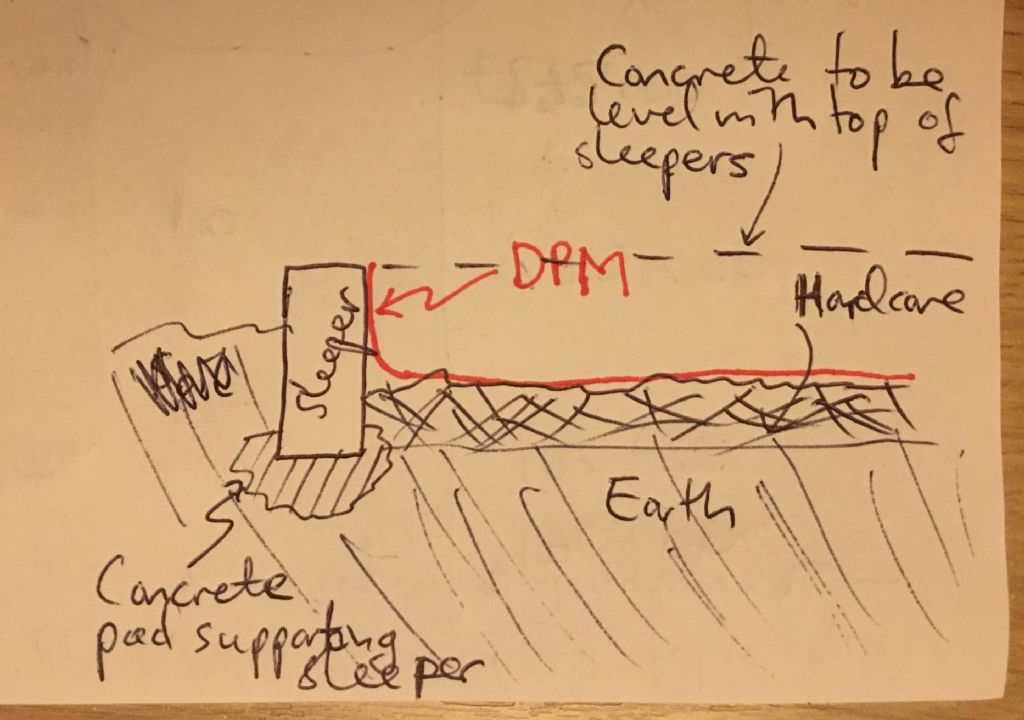 Concrete to be
level with top of
sleepers
DPM
Hardcore
Sleeper
Earth
Concrete
pad supporting
sleeper